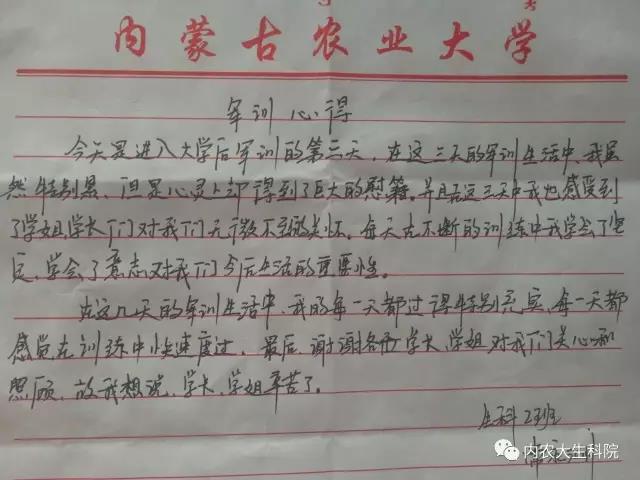 内蒙古农业大学
军训心得
今天是进入大学后军训的第三天，在这三天的军训生活中，我虽
然特别累，但是心灵上却得到了巨大的慰籍。并且在这三天中我也感受到
了学姐学长们对我们无微不至的关怀。每天在不断的训练中我学会了坚
定，学会了意志对我们今后生活的重要性。
在这几天的军训生活中，我的每一天都过得特别充实，每一天都
感觉在训练中快速度过。最后，谢谢各位学长、学姐对我们关心和
照顾，故我想说，学长、学姐辛苦了。
生科2班
内农大生科院